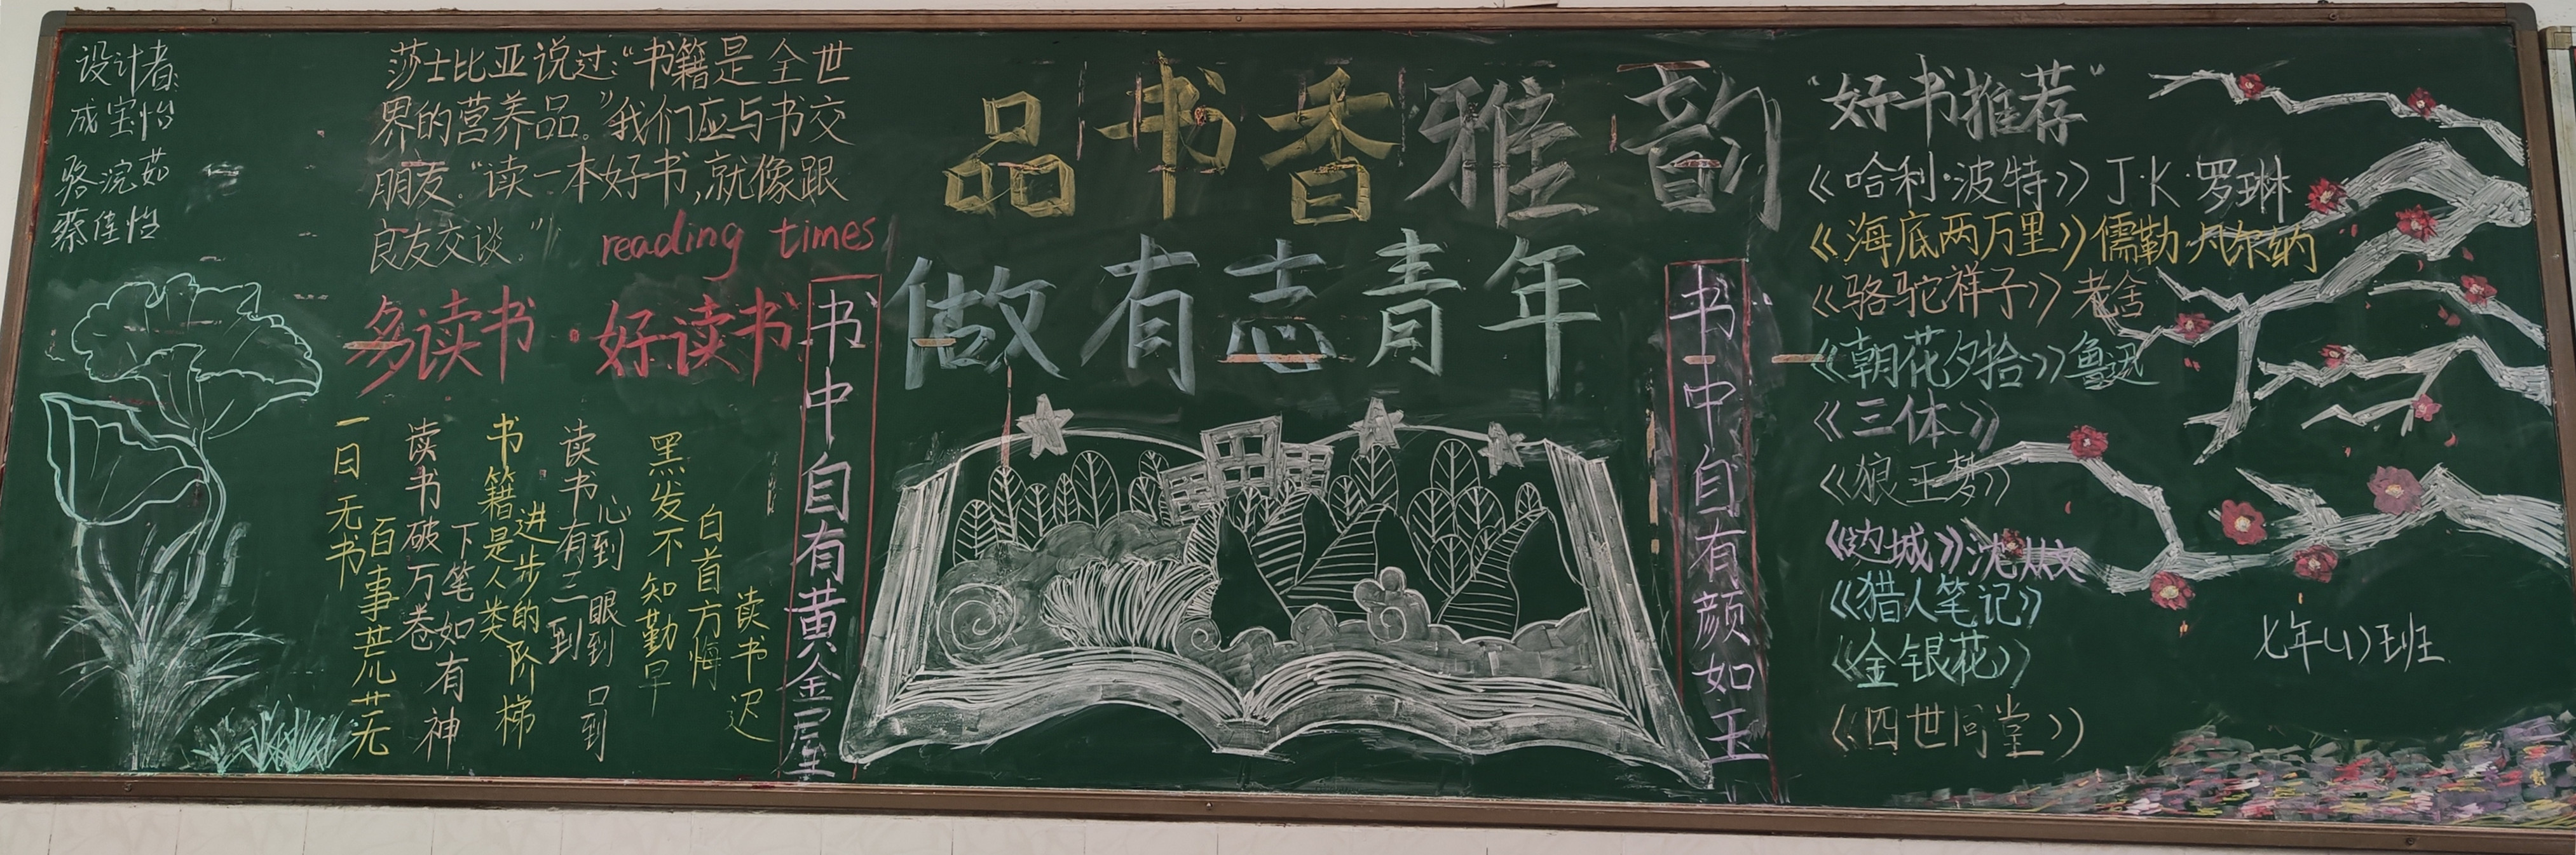 设计者:
成宝怡
骆浣茹
蔡佳怡
莎士比亚说过:“书籍是全世
界的营养品。”我们应与书交
朋友.“读一本好书,就像跟
良友交谈.”
reading times
多读书·好读书
一日无书
百事荒芜
读书破万卷
下笔如有神
书籍是人类
进步的阶梯
读书有三到
心到 眼到 口到
黑发不知勤早
白首方悔
读书迟
书中自有黄金屋
品书香雅韵
做有志青年
书中自有颜如玉
“好书推荐”
《哈利·波特》J·K·罗琳
《海底两万里》儒勒·凡尔纳
《骆驼祥子》老舍
《朝花夕拾》鲁迅
《三体》
《狼王梦》
《边城》沈从文
《猎人笔记》
《金银花》
《四世同堂》
七年(1)班